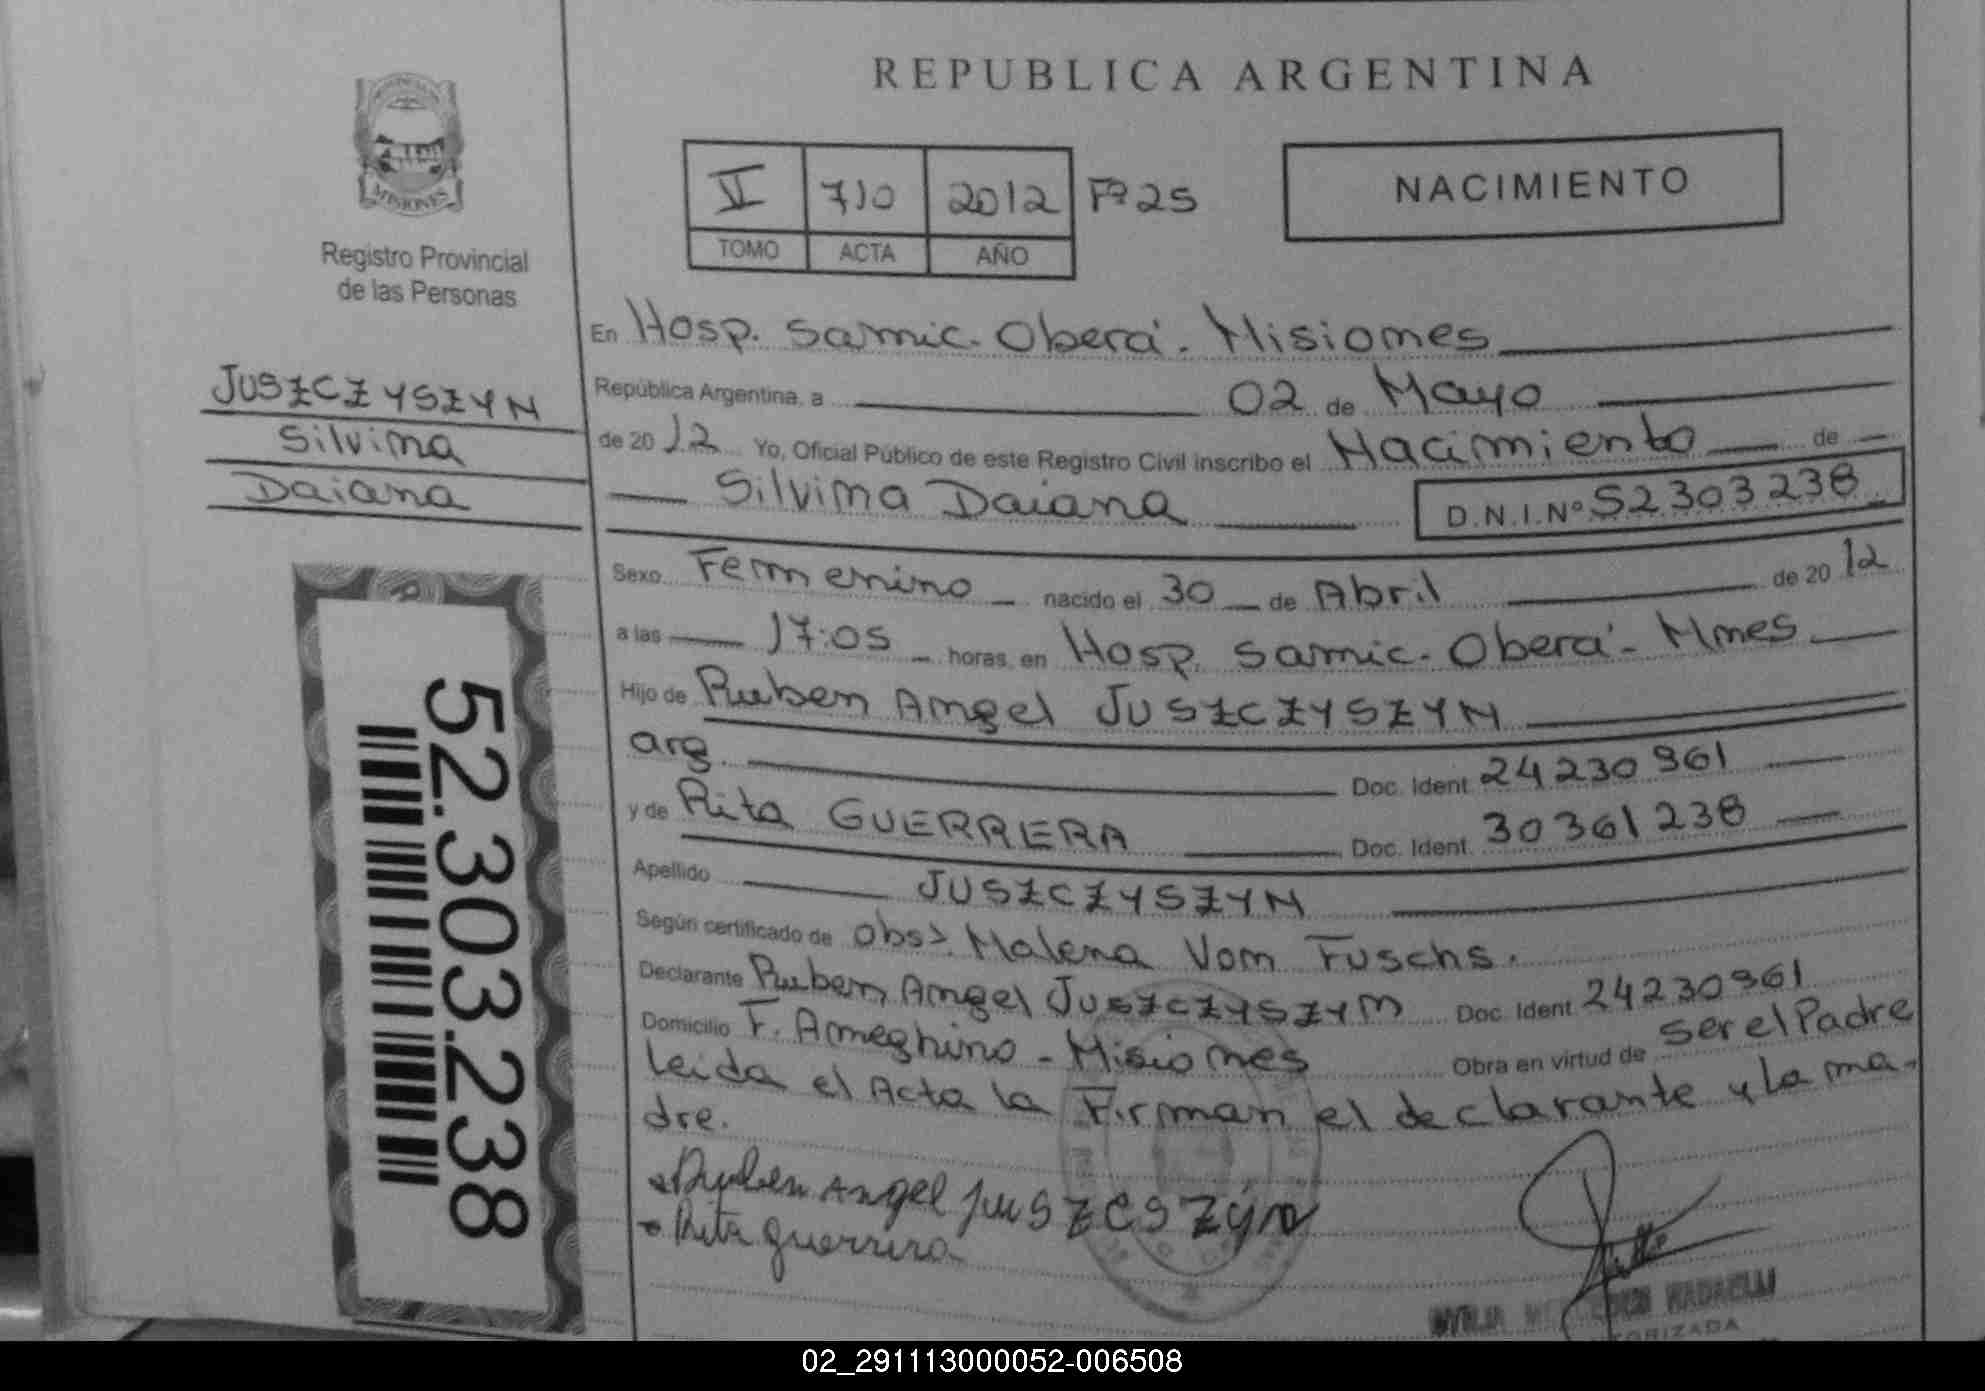 REPUBLICA ARGENTINA
MISIONES
Registro Provincial
de las Personas
VI 710 2012 Fº 25
TOMO ACTA AÑO
NACIMIENTO
JUSZCZYSZYN
Silvina
Daiana
52.303.238
En Hosp. Samic. Oberá. Misiones
República Argentina, a 02 de Mayo
de 2012 Yo, Oficial Público de este Registro Civil inscribo el Nacimiento de
Silvina Daiana D.N.I.Nº 52303238
Sexo Femenino nacido el 30 de Abril de 2012
a las 17:05 horas, en Hosp. Samic. Oberá - Mnes
Hijo de Ruben Angel JUSZCZYSZYN
arg Doc. Ident. 24230961
y de Rita GUERRERA Doc. Ident. 30361238
Apellido JUSZCZYSZYN
Según certificado de Obst. Malena Von Fuschs.
Declarante Ruben Angel JUSZCZYSZYN Doc. Ident. 24230961
Domicilio F. Ameghino - Misiones Obra en virtud de ser el Padre
leida el Acta la Firman el declarante y la ma-
dre.
Ruben Angel juszcszyn
Rita guerrera
02_291113000052-006508